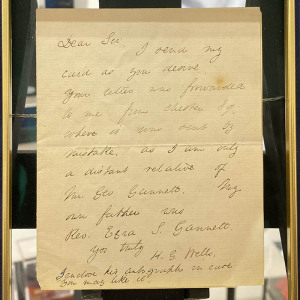 Dear Sir
I send my
card as you desire
Your letter was forwarded
to me from Chester Sq
where it was sent by
mistake, as I am only
a distant relative of
Mr. Geo Gannett. My
own father was
Rev. Ezra S. Gannett.
Yrs truly
H. G. Wells.
I enclose his autographs in case
you may like it.